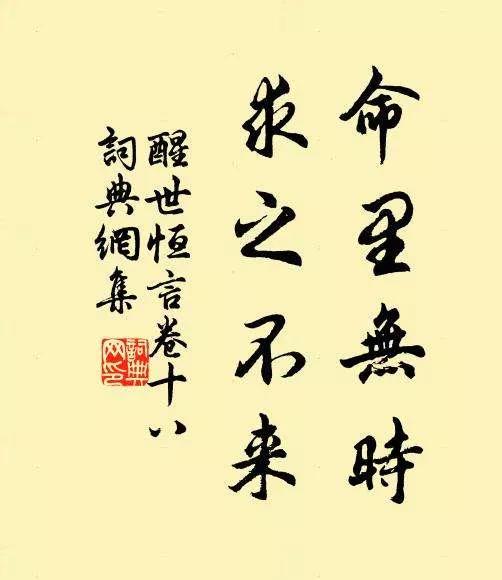 命里無時
求之不来
醒世恒言卷十八
詞典網集
詞典网印